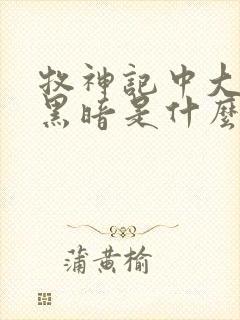 牧神記中大
黑暗是什麼
蒲黄榆